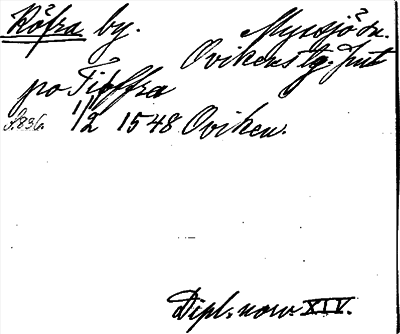 Röfra by. Myssjö sn.
Ovikens tg. Jmt
po Tioffra
s. 836. 1/2 1548 Oviken.
Dipl. norv. XIV.